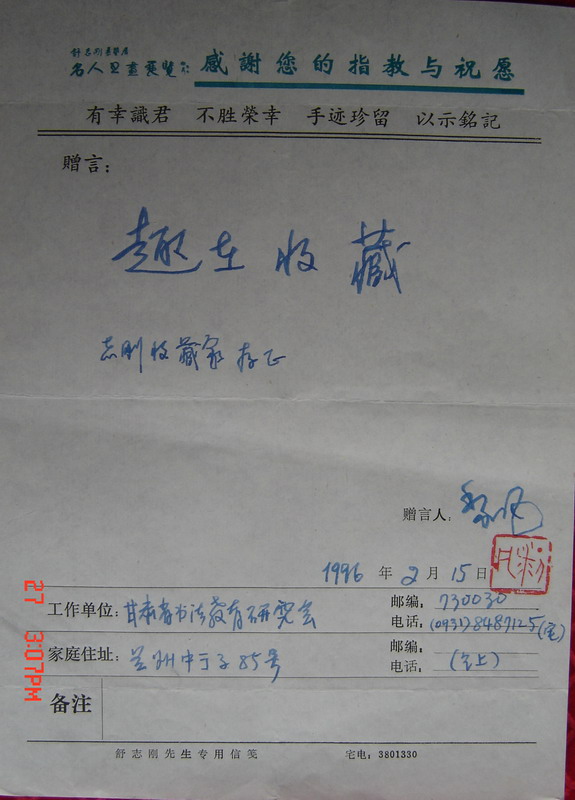 舒志刚
名人书画展览 感謝您的指教与祝愿
有幸識君 不胜榮幸 手迹珍留 以示銘記
赠言：
趣在收藏
志刚收藏家存正
赠言人：
1996年2月15日
工作单位：甘肃省书法教育研究会
邮编：730030
电话：(0931)8487125(宅)
家庭住址：兰州中山子85号
邮编：
电话：(同上)
备注
舒志刚先生专用信笺 宅电：3801330
27 3:07PM